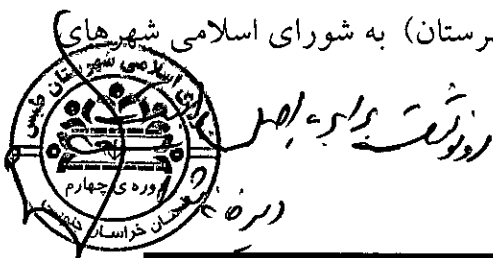 رستان) به شورای اسلامی شهرهای
شورای اسلامی شهرستان طبس
دوره ی چهارم
استان خراسان جنوبی
رونوشت برابر اصل